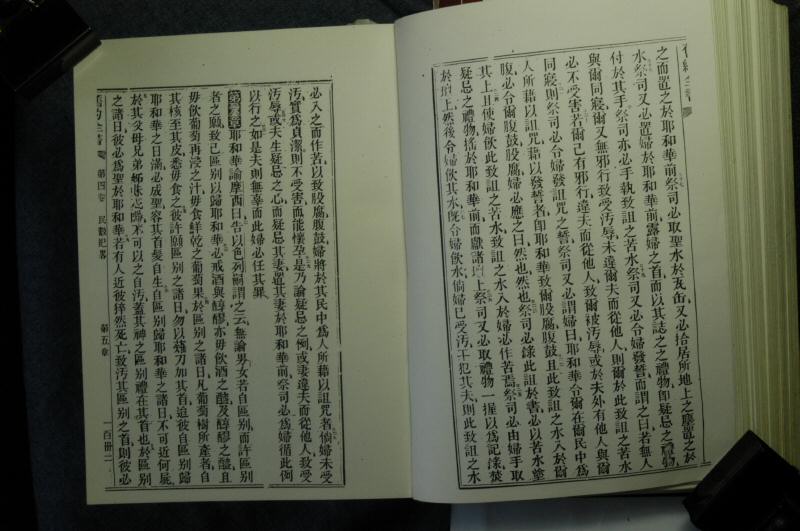 之而置之於耶和華前祭司必取聖水於瓦缶又必拾居所地上之塵置之於
水祭司又必置婦於耶和華前露婦之首而以其誌之之禮物即疑忌之禮物
付於其手祭司亦必手執致詛之苦水祭司又必令婦發誓而謂之曰若無人
與爾同寢爾又無邪行致受污辱未違爾夫而從他人則爾於此致詛之苦水
必不受害若爾已有邪行違夫而從他人致爾被污辱或於夫外有他人與爾
同寢則祭司必令婦發詛咒之誓祭司又必謂婦曰耶和華令爾在爾民中為
人所藉以詛咒藉以發誓者即耶和華致爾股腐腹鼓且此致詛之水入於爾
腹必令爾腹鼓股腐婦必應之曰然也然也祭司必錄此詛於書必以苦水塗
其上且使婦飲此致詛之苦水致詛之水入於婦必作苦焉祭司必由婦手取
疑忌之禮物搖於耶和華前而獻諸壇上祭司又必取禮物一握以為記錄焚
於壇上然後令婦飲其水既令婦飲水倘婦已受污干犯其夫則此致詛之水
必入之而作苦以致股腐腹鼓婦將於其民中為人所藉以詛咒者倘婦未受
污實為貞潔則不受害而能懷孕是乃論疑忌之例或妻違夫而從他人致受
污辱或夫生疑忌之心而疑忌其妻置其妻於耶和華前祭司必為婦循此例
以行之如是夫則無辜而此婦必任其罪
第六章耶和華諭摩西曰告以色列嗣謂之云無論男女若自區別而許區別
者之願致已區別以歸耶和華必戒酒與醇醪亦毋飲酒之醯及醇醪之醯且
毋飲葡萄再浸之汁毋食鮮乾之葡萄果於區別之諸日凡葡萄樹所產者自
其核至其皮悉毋食之彼許願區別之諸日勿以薙刀加其首迨彼自區別歸
耶和華之日滿必成聖容其首髮自生自區別歸耶和華之諸日不可近何屍
於其父母兄弟姊妹之歸不可以之自污蓋其神之區別禮在其首也於區別
之諸日彼必為聖於耶和華若有人近彼猝然死亡致污其區別之首則彼必
第四卷 民數紀畧 第五章 一百卅二